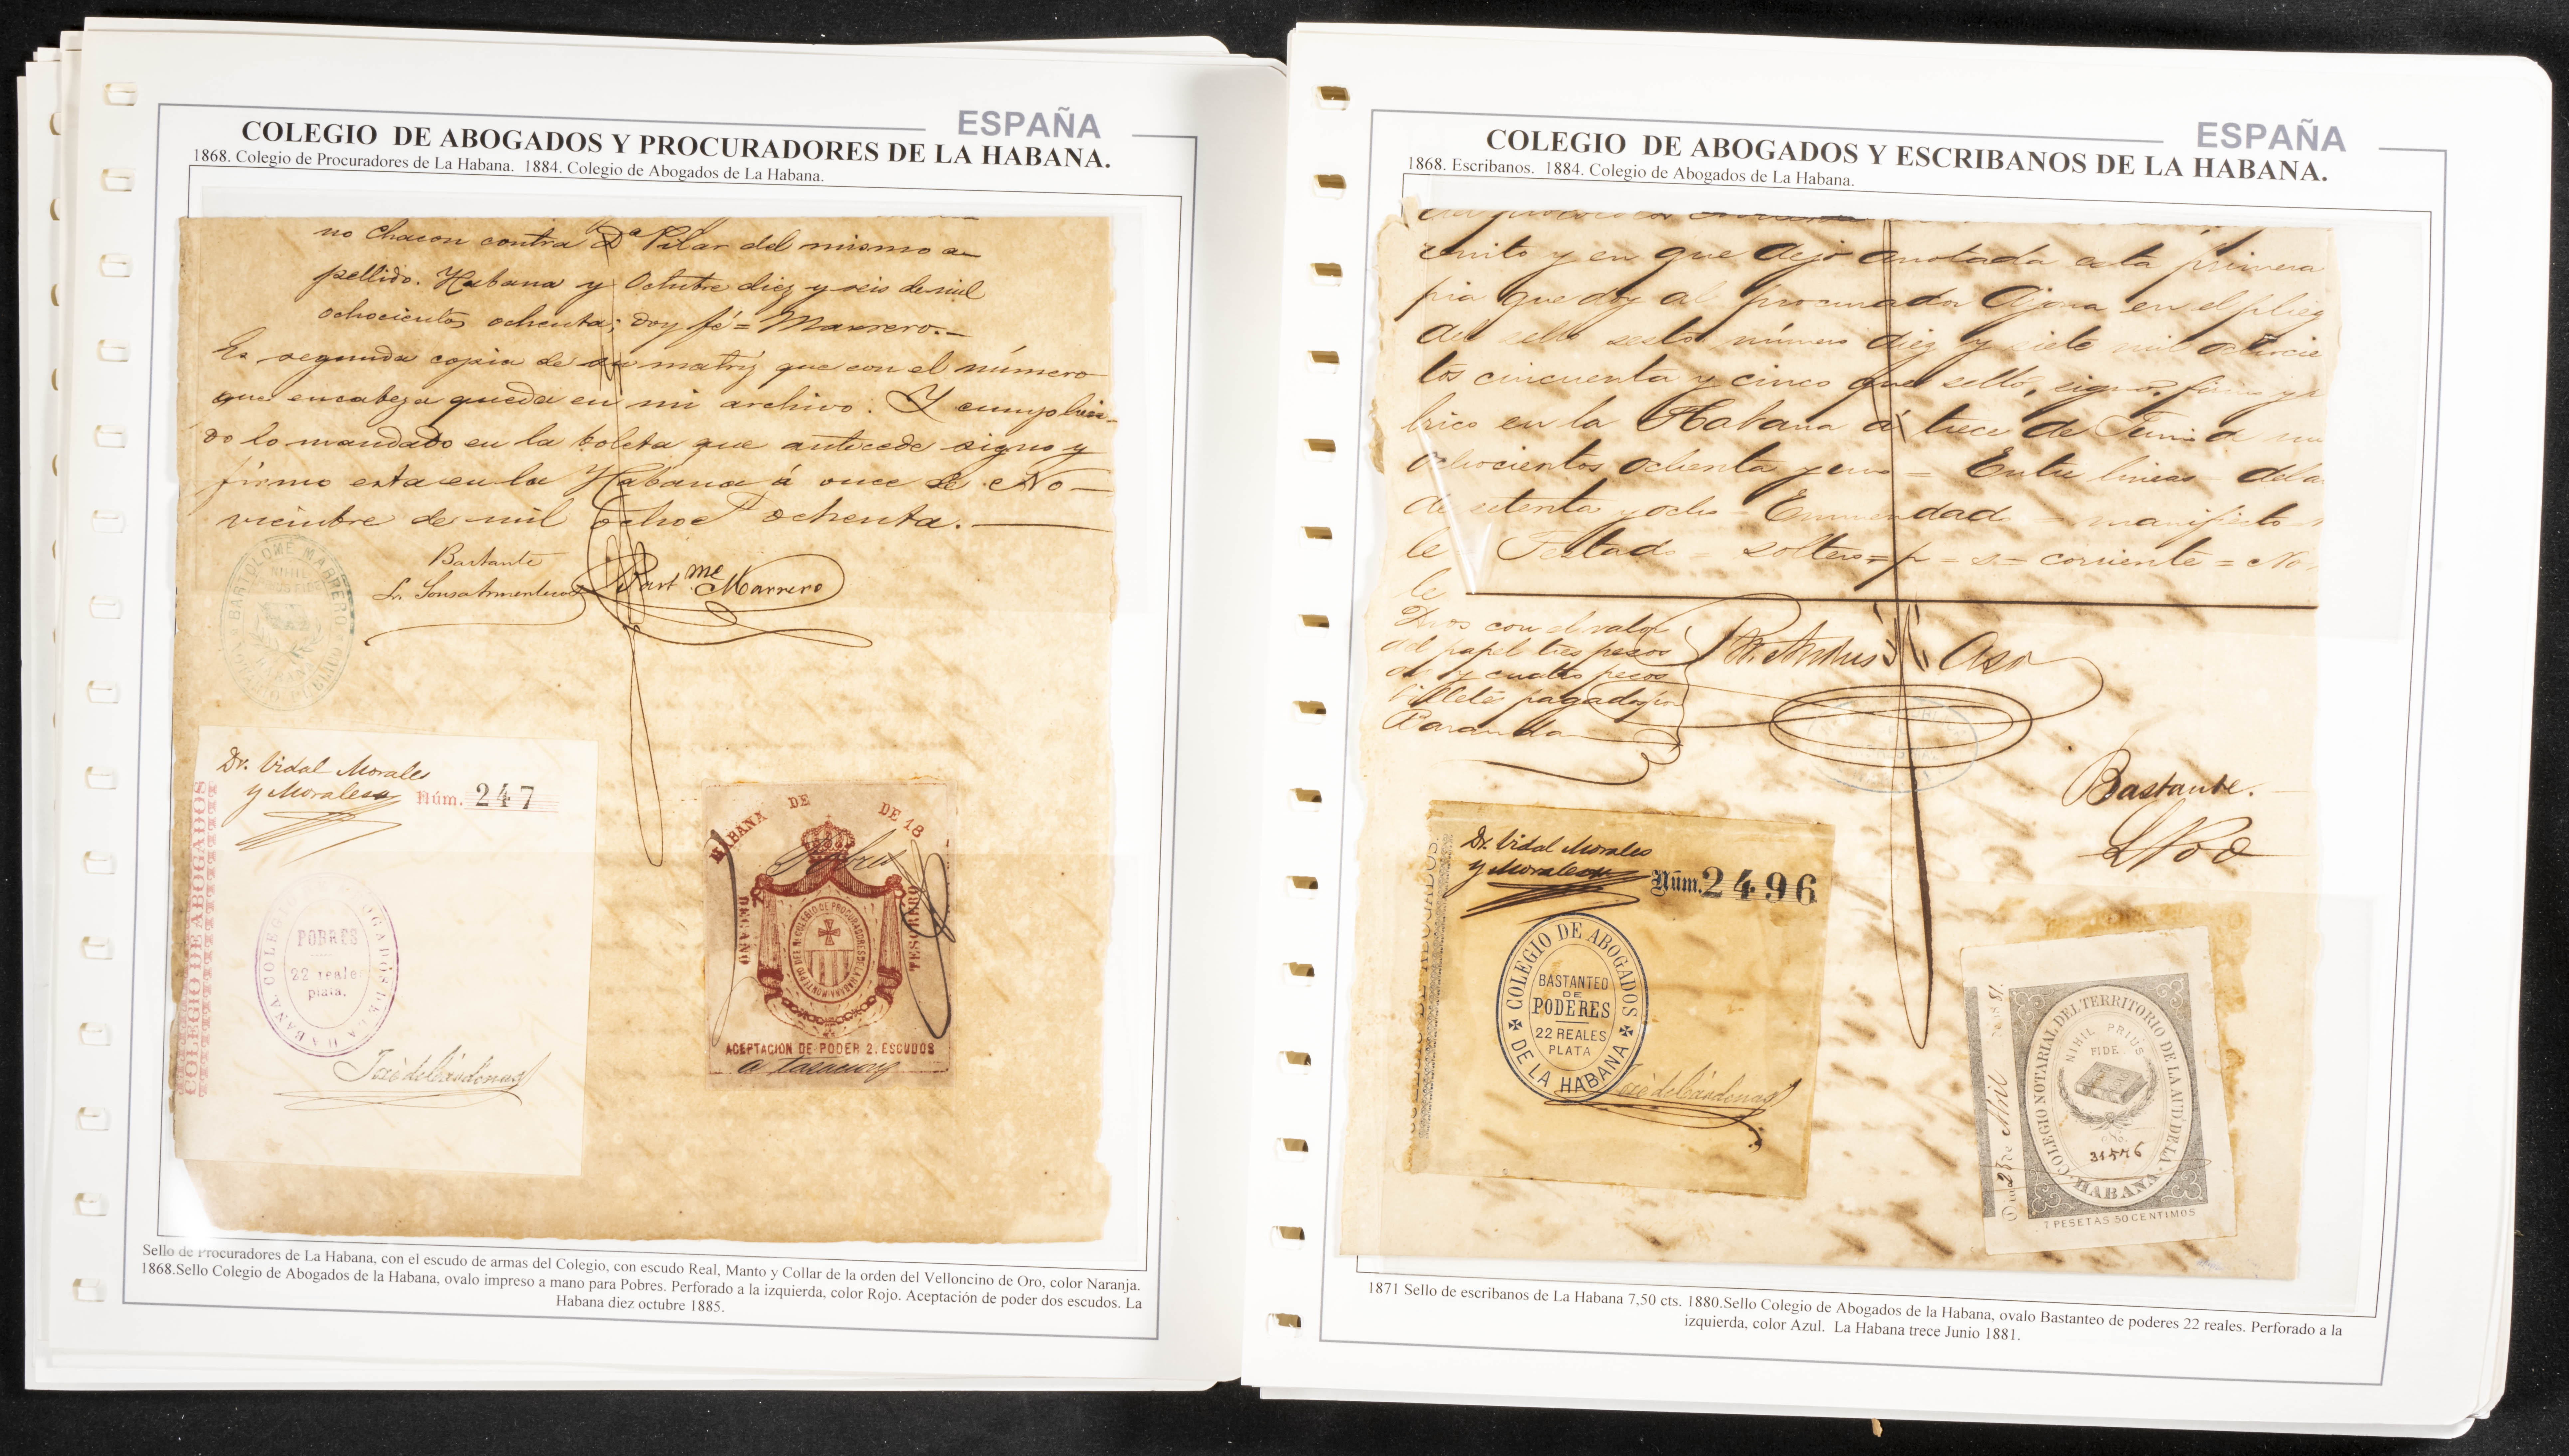 ESPAÑA
COLEGIO DE ABOGADOS Y PROCURADORES DE LA HABANA.
1868. Colegio de Procuradores de La Habana. 1884. Colegio de Abogados de La Habana.
no Chacon contra Dª Pilar del mismo a
pellido. Habana y Octubre diez y seis de mil
ochocientos ochenta; doy fé = Marrero.
Es segunda copia de su matriz que con el número
que encabeza queda en mi archivo. Y cumplien-
do lo mandado en la boleta que antecede signo y
firmo esta en la Habana á once de No-
viembre de mil ochocs ochenta.
Bastante
Bartme Marrero
BARTOLOMÉ MARRERO
Dr. Vidal Morales
y Morales
Núm. 247
COLEGIO DE ABOGADOS
COLEGIO DE ABOGADOS DE LA HABANA
POBRES
22 reales
plata.
José de Cárdenas
HABANA DE DE 18
DECANO
TESORERO
MONTEPIO DEL RL COLEGIO DE PROCURADORES DE LA HABANA
ACEPTACION DE PODER 2. ESCUDOS
Sello de Procuradores de La Habana, con el escudo de armas del Colegio, con escudo Real, Manto y Collar de la orden del Velloncino de Oro, color Naranja.
1868.Sello Colegio de Abogados de la Habana, ovalo impreso a mano para Pobres. Perforado a la izquierda, color Rojo. Aceptación de poder dos escudos. La
Habana diez octubre 1885.
ESPAÑA
COLEGIO DE ABOGADOS Y ESCRIBANOS DE LA HABANA.
1868. Escribanos. 1884. Colegio de Abogados de La Habana.
y en que dejo anotada esta primera
pia que doy al procurador en el plieg
del sello sesto número diez y siete mil ochocie
tos cincuenta y cinco que sello, signo, firmo y r
brico en la Habana á trece de Junio de mi
ochocientos ochenta y uno = Entre lineas
de setenta y ocho = Enmendado = manifiesto
le = Testado = soltero = p = s = corriente = No
le
Dros con el valor
del papel tres pesos
y cuatro pesos
billete pagados por
Baranda
Bastante.
Dr. Vidal Morales
y Morales
Núm. 2496
COLEGIO DE ABOGADOS
DE LA HABANA
BASTANTEO
DE
PODERES
22 REALES
PLATA
José de Cárdenas
COLEGIO NOTARIAL DEL TERRITORIO DE LA AUD. DE LA HABANA
NIHIL PRIUS
FIDE
31576
7 PESETAS 50 CENTIMOS
23 de Abril
1871 Sello de escribanos de La Habana 7,50 cts. 1880.Sello Colegio de Abogados de la Habana, ovalo Bastanteo de poderes 22 reales. Perforado a la
izquierda, color Azul. La Habana trece Junio 1881.